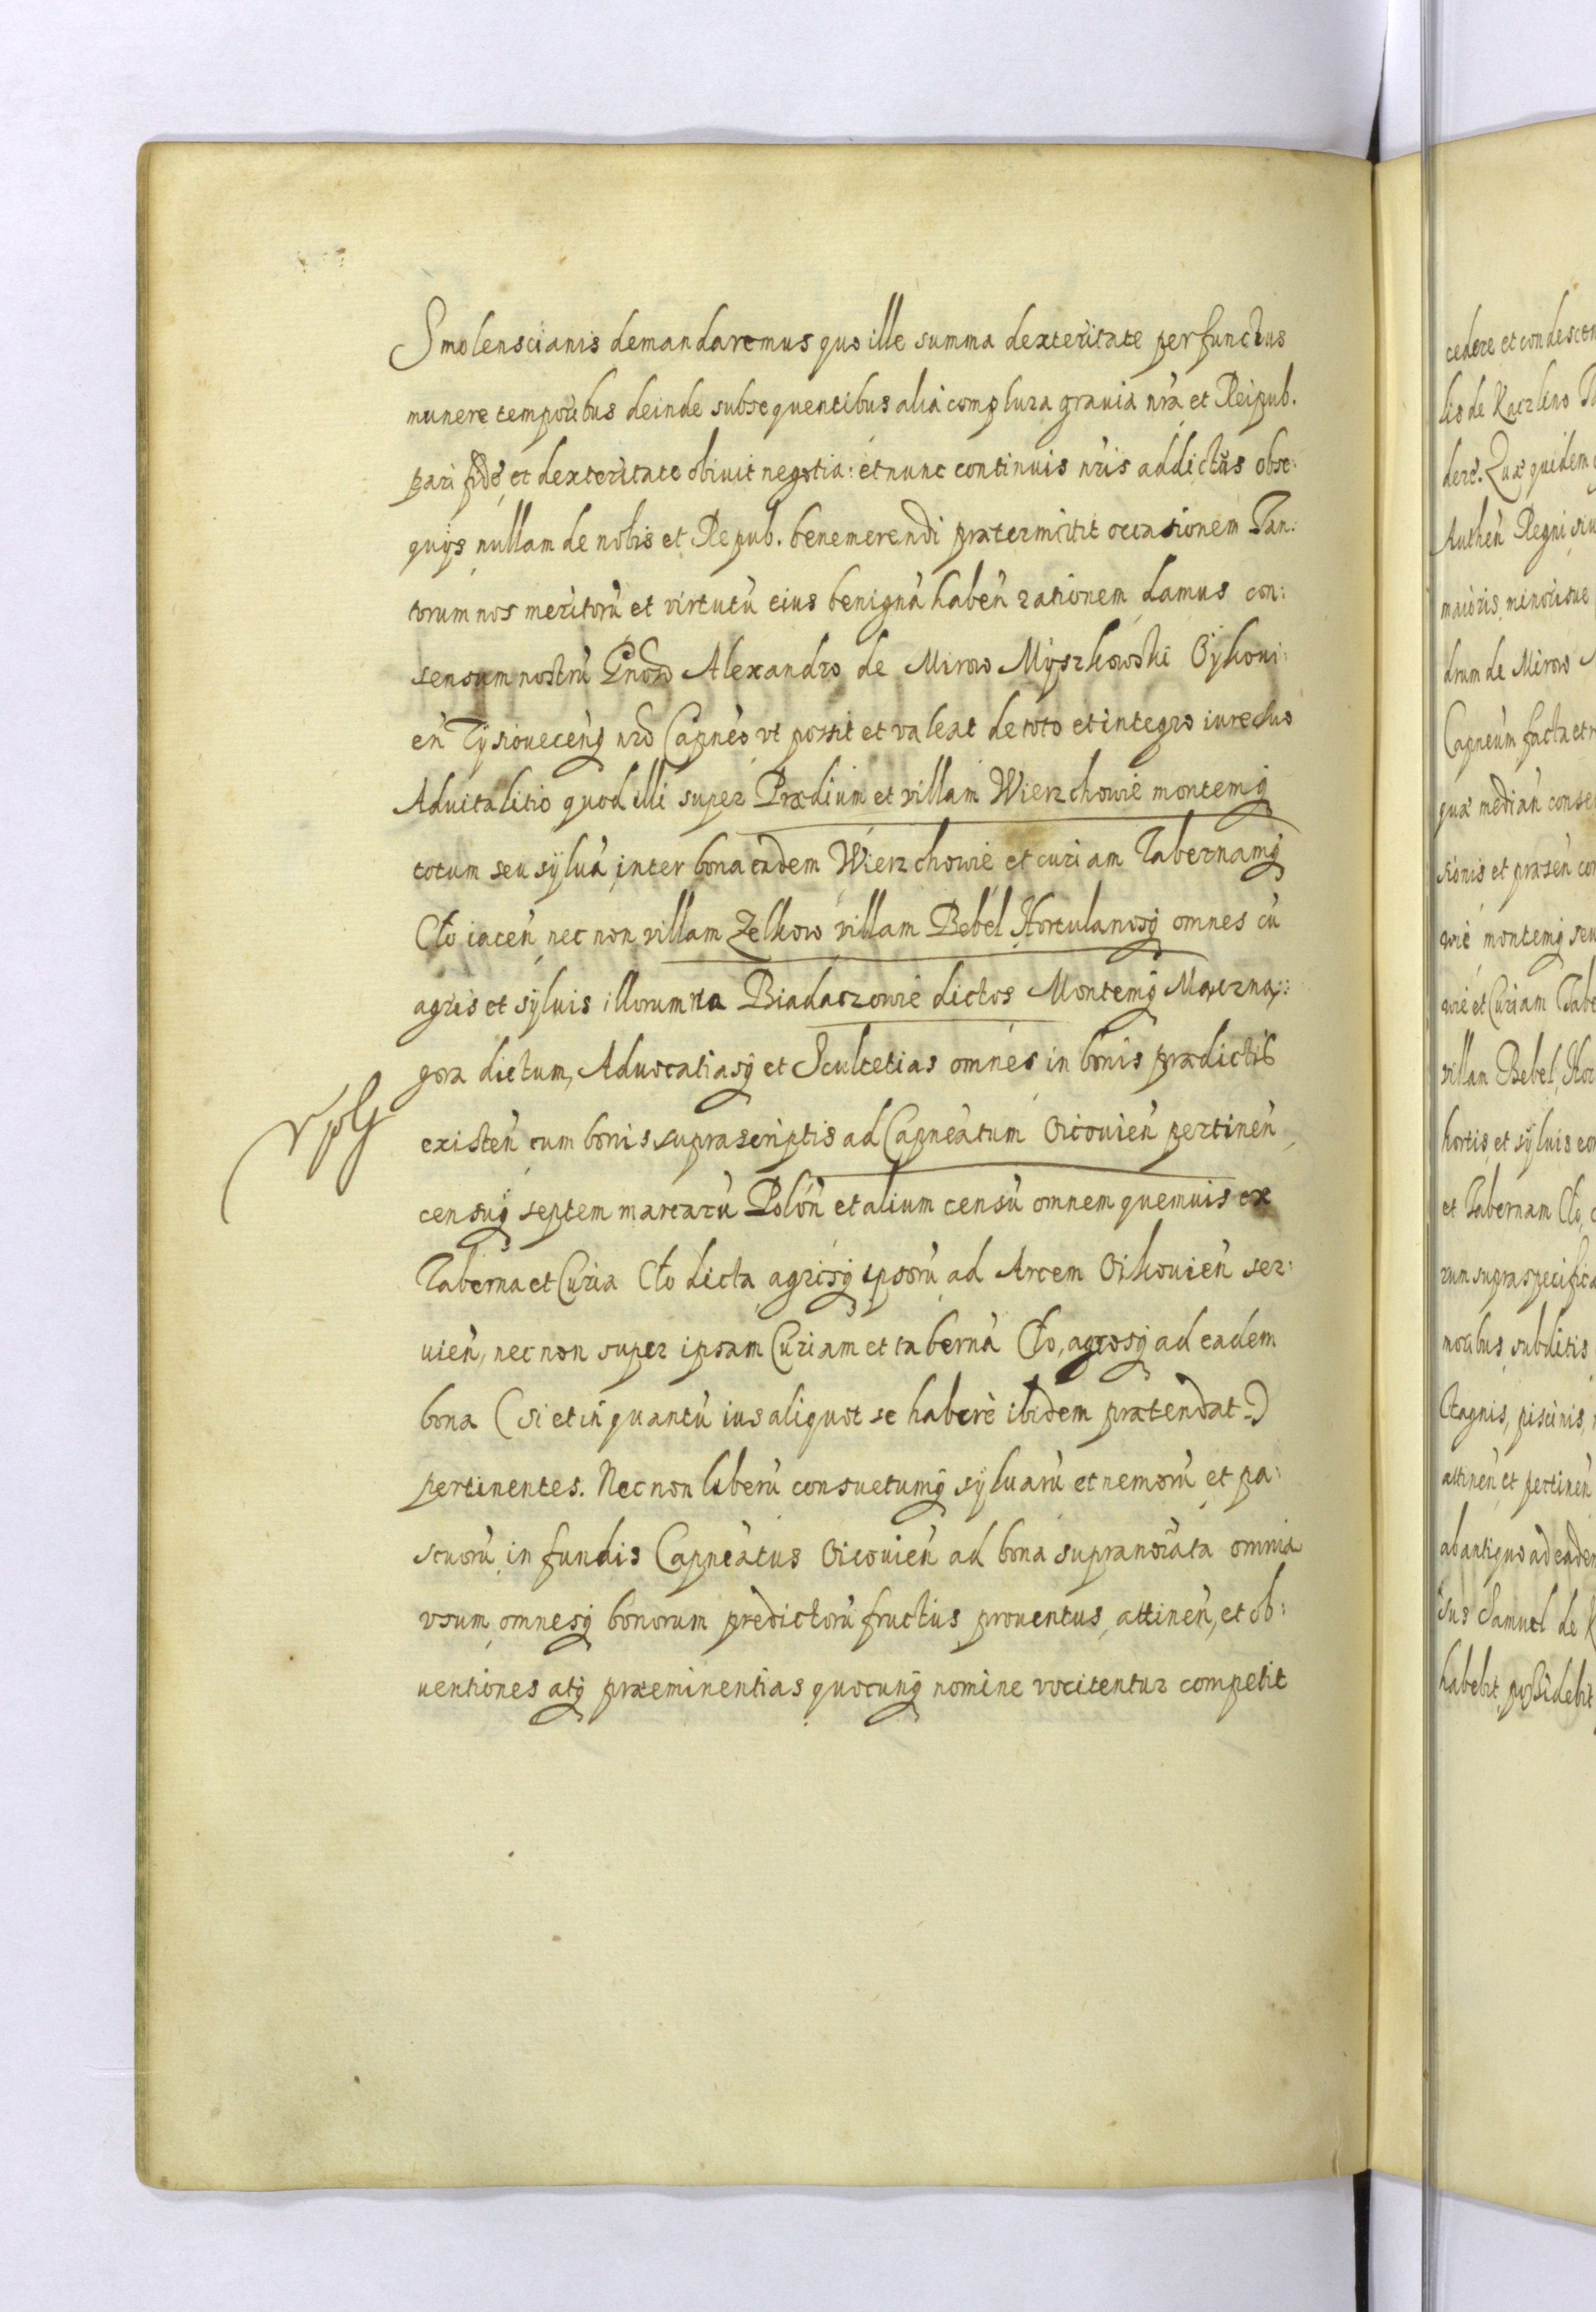 Smolenscianis demandaremus quo ille summa dexteritate perfunctus
munere temporibus deinde subsequentibus alia complura grauia nrã et Reipub.
pari fide et dexteritate obiuit negotia: et nunc continuis nris addictus obse:
quÿs nullam de nobis et Repub. benemerendi prætermittit occasionem Tan:
torum nos meritorũ et virtutũ eius benignã habeñ rationem damus con:
sensum nostrũ Gnoso Alexandro de Mirow Mÿszkowski Oÿkoui:
eñ Tÿszouecenq̃ nrõ Capneo vt possit et valeat de toto et integro iure suo
Aduitalitio quod illi super Prædium et villam Wierzchowie montemq̃
totum seu sÿluã inter bona eadem Wierzchowie et curiam Tabernamq̃
Cło iaceñ nec non villam Zelkow villam Bebel Hortulanosq̃ omnes cũ
agris et sÿluis illorum na Biadaczowie dictos Montemq̃ Maczna:
gora dictum, Aduocatiasq̃ et Scultetias omnes in bonis prædictis
existeñ cum bonis suprascriptis ad Capneatum Oicouieñ pertineñ
censuq̃ septem marcarũ Poloñ et alium censũ omnem quemuis ex
Taberna et Curia Cło dicta agrisq̃ ipsorũ ad Arcem Oikouieñ ser:
uieñ, nec non super ipsam Curiam et tabernã Cło, agrosq̃ ad eadem
bona (si et in quantũ ius aliquot se habere ibidem prætendat)
pertinentes. Nec non liberũ consuetumq̃ sÿluarũ et nemorũ et pa:
scuorũ in fundis Capneatus Oicouieñ ad bona supranotata omnia
vsum omnesq̃ bonorum predictorũ fructus prouentus, attineñ, et ob:
uentiones atq̃ præeminentias quocunq̃ nomine vocitentur competit
cedere et condescen
lis de
dere. Quæ quidem
Rutheñ Regni siu
maioris, minorisue
drum de Mirow
Capneum facta et
quæ mediañ conse
sionis et præseñ con
wie montemq̃ seu
wie et Curiam Tabe
villam Bebel, Hor
hortis et sÿluis eor
et Tabernam Cło,
rum supraspecifica
moribus subditis
Stagnis, piscinis,
attineñ et pertineñ
ab antiquo ad eadem
sus Samuel de
habebit, possidebit